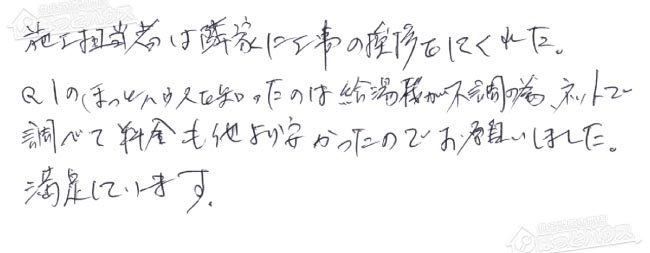 施工担当者は隣家に工事の挨拶もしてくれた。
Q1のほっとハウスを知ったのは給湯機が不調の為、ネットで
調べて料金も他より安かったのでお願いしました。
満足しています。
ほっとハウス
ほっとハウス